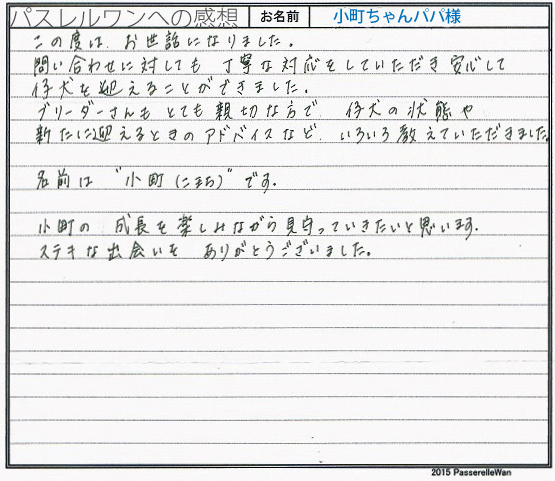 パスレルワンへの感想 お名前 小町ちゃんパパ様
この度は、お世話になりました。
問い合わせに対しても 丁寧な対応をしていただき 安心して
仔犬を迎えることができました。
ブリーダーさんも とても親切な方で、仔犬の状態や
新たに迎えるときのアドバイスなど、いろいろ教えていただきました。
名前は "小町(こまち)" です。
小町の 成長を楽しみながら見守っていきたいと思います。
ステキな出会いを ありがとうございました。
2015 PasserelleWan